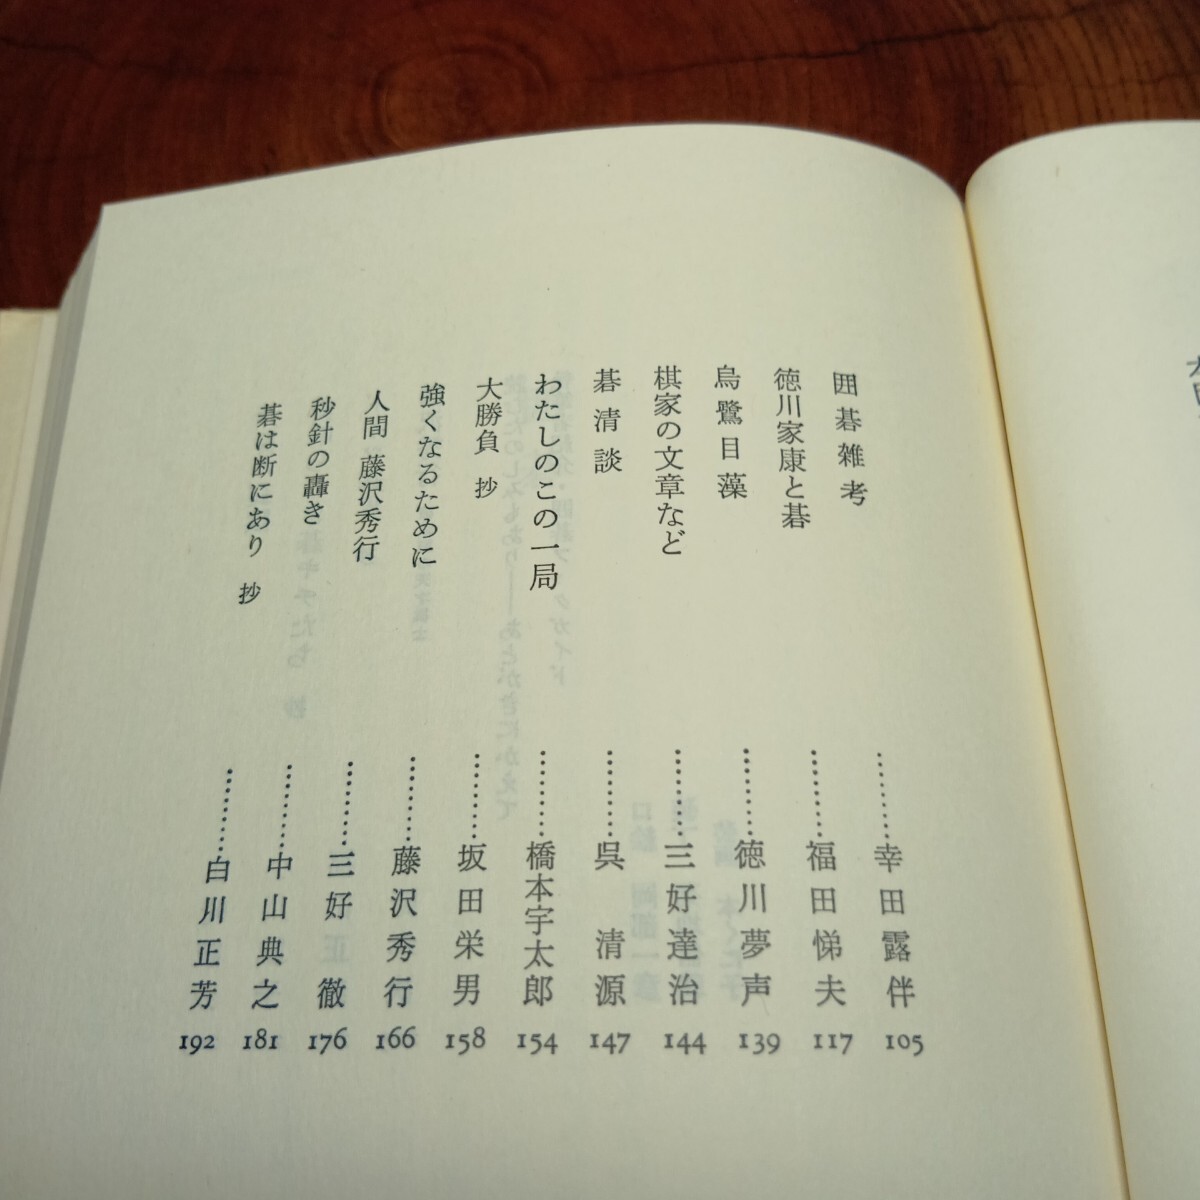 囲碁雑考………幸田露伴 105
徳川家康と碁………福田悌夫 117
烏鷺目藻………徳川夢声 139
棋家の文章など………三好達治 144
碁清談………呉 清源 147
わたしのこの一局………橋本宇太郎 154
大勝負 抄………坂田栄男 158
強くなるために………藤沢秀行 166
人間 藤沢秀行………三好 徹 176
秒針の轟き………中山典之 181
碁は断にあり 抄………白川正芳 192